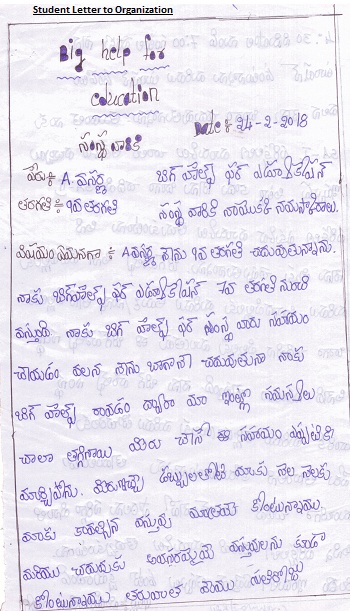 Student Letter to Organization
Big help for
education
Date: 24-2-2018
సంస్థ వారికి
పేరు : A. వసర్ణ బిగ్ హెల్ప్ ఫర్ ఎడ్యుకేషన్
తరగతి : 9వ తరగతి సంస్థ వారికి నమస్కారాలు.
విషయం ఏమనగా : A వసర్ణ నేను 9వ తరగతి చదువుతున్నాను.
నాకు బిగ్ హెల్ప్ ఫర్ ఎడ్యుకేషన్ 7వ తరగతి నుంచి
వస్తుంది నాకు బిగ్ హెల్ప్ ఫర్ సంస్థ వారు సహాయం
చేయడం వలన నేను బాగానే చదువుతున్నా నాకు
బిగ్ హెల్ప్ రావడం ద్వారా మా ఇంట్లో సమస్యలు
చాలా తగ్గినాయి మీరు చేసే ఈ సహాయం ఎప్పటికి
మర్చిపోను. మీరిచ్చే డబ్బులతోటి మాకు నెల నెలకు
మాకు కావల్సిన వస్తువు మాత్రమే కొంటున్నాము.
మరియు చదువుకు అవసరమయ్యే వస్తువులను కూడా
కొంటున్నాము తరువాత మేము